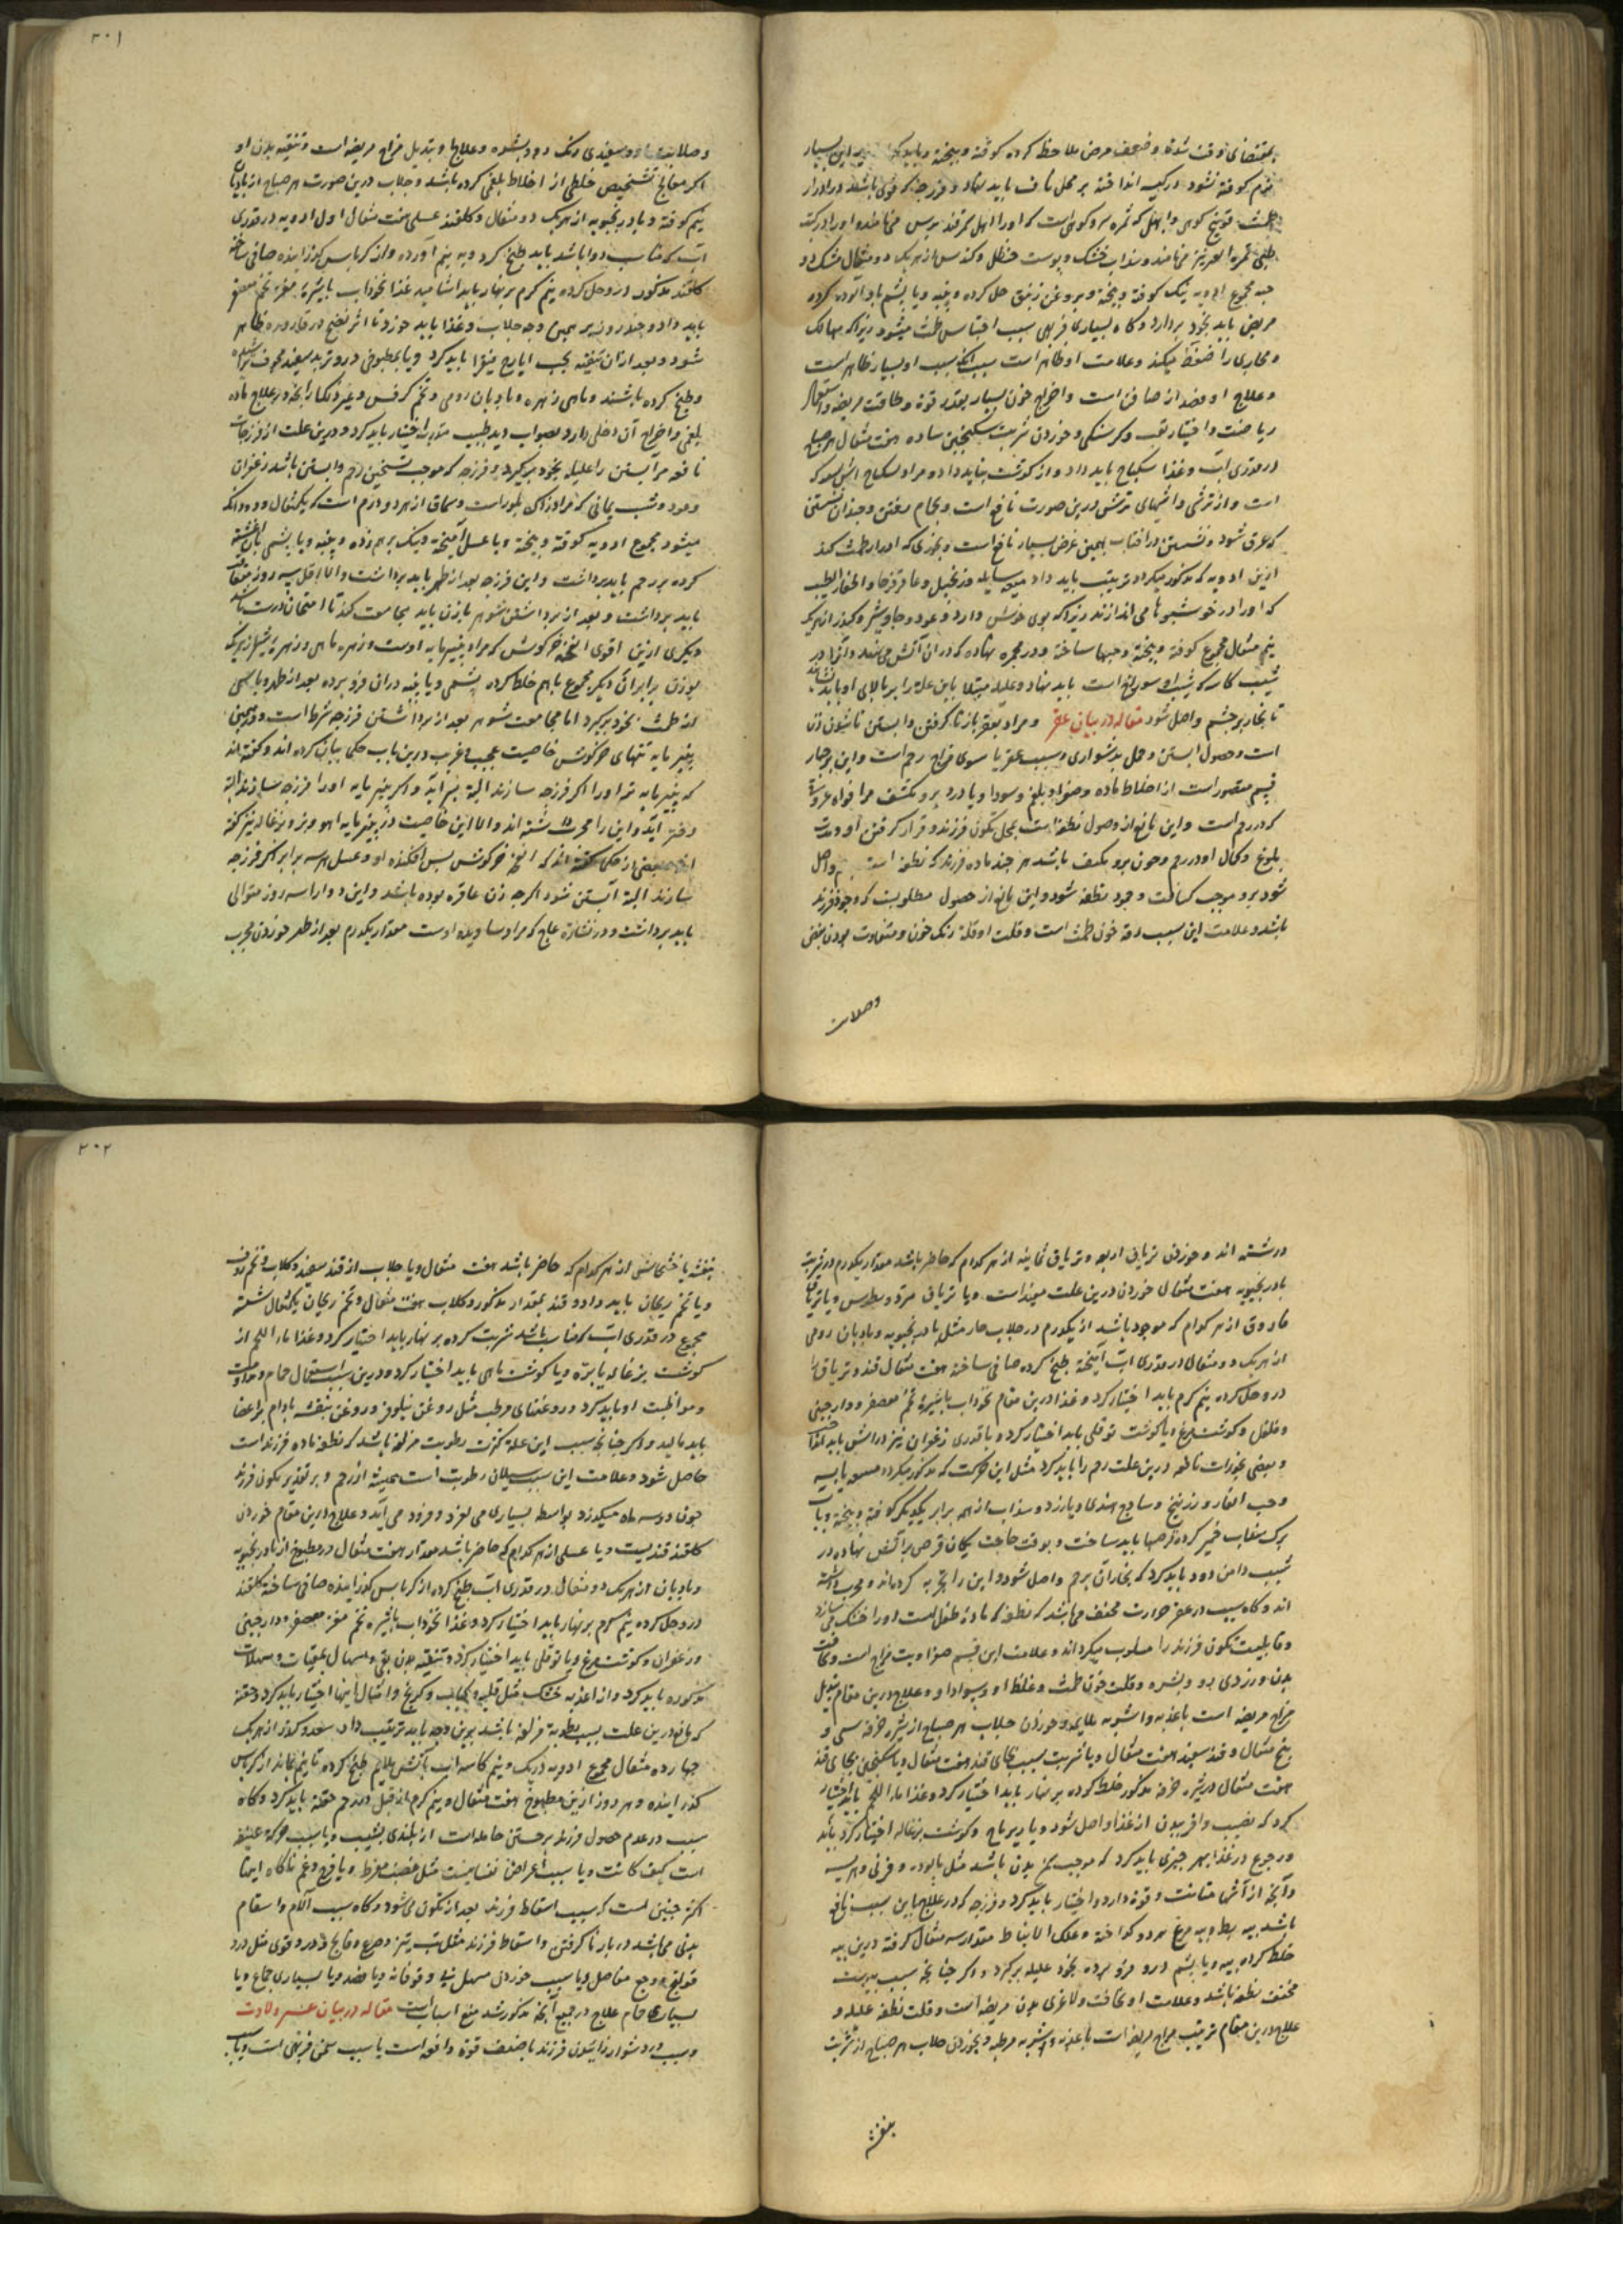 بمقتضای قوت شدة و ضعف مرض ملاحظه کرده کوفته و بیخته و باید که این بسیار
نرم کوفته نشود در کیسه انداخته بر محل ناف باید نهاد و فرزجه که قوی باشد در ادرار
طمث فوتنج کوهی و ابهل که ثمره سرو کوهیست که او را اهل سمرقند برس می نامند و او را در کتب
طبی ثمرة العرعر می نامند و سذاب خشک و پوست حنظل و کندس از هر یک دو مثقال مشک دو
حبه مجموع ادویه نیک کوفته و بیخته و بروغن زنبق حل کرده و پنبه و یا پشم باو آلوده کرده
مریض باید بخود بردارد و کاه بسیاری فربهی سبب احتباس طمث میشود زیرا که مسالک
و مجاری را ضغط میکند و علامت او ظاهر است سبب آنکه سبب او بسیار ظاهر است
و علاج او فصد از صافن است و اخراج خون بسیار بقدر قوة و طاقت مریضه و استعمال
ریاضت و اختیار تعب و کرسنکی و خوردن شربت سکنجبین ساده هفت مثقال هر صباح
در قدری آب و غذا سکباج باید داد و از کوشت نباید داد و مراد بسکباج آش سرکه
است و از ترشی و آشهای ترش درین صورت نافع است و بحمام رفتن و چندان نشستن
که عرق شود و نشستن در آفتاب بهمین غرض بسیار نافع است و بخوری که ادرار طمث کند
ازین ادویه که مذکور میکردد ترتیب باید داد میعه سایله و زنجبیل و عاقرقرحا و اظفار الطیب
که او را در خوشبویها می اندازند زیرا که بوی خوش دارد و عود و جاوشیر و کندر از هر یک
نیم مثقال مجموع کوفته و بیخته و حبها ساخته و در مجمره نهاده که در ان آتش می نهند و آنرا در
شیب کار که شیب او سوراخ است باید نهاد و علیله مبتلا باین علة را بر بالای او باید نشاند
تا بخار برحم واصل شود مقاله در بیان عقر و مراد بعقر باز ناکرفتن و ابستن ناشدن زن
است و حصول ابستن و حمل بدشواری و سبب عقر یا سوی مزاج رحم است و این بر چهار
قسم متصور است از اخلاط ماده و صفرا و بلغم و سودا و یا درد برو تکثف مر افواه عروق
که در رحم است و این مانع از وصول نطفه است بمحل تکون فرزند و قرار کرفتن او و مدت
بلوغ و کمال او در رحم و چون برو مکثف باشد هر چند ماده فرزند که نطفه است واصل
شود برو موجب کسالت وجود نطفه شود و این مانع از حصول مطلوبست که وجود فرزند
باشد و علامت این سبب رقة خون طمث است و قلت او قلة رنک خون و متفاوت بودن نبض
وصلابت
٣٠١
وصلابت او و سفیدی رنک و علاج او تبدیل مزاج مریضه است و تنقیه بدن او
اکر معالج تشخیص خلطی از اخلاط بلغمی کرده باشد و جلاب درین صورت هر صباح از بادیان
نیم کوفته و بادرنجبویه از هر یک دو مثقال و کلقند عسلی هفت مثقال اول ادویه در قدری
آب که مناسب دوا باشد باید طبخ کرد و به نیم آورده و از کرباس کذرانیده صافی ساخته
کلقند مذکور در و حل کرده نیم کرم بر نهار باید اشامید غذا نخوداب باشیرة مغز تخم معصفر
باید داد و چند روز بر همین وجه جلاب و غذا باید خورد تا اثر نضج در قاروره ظاهر
شود و بعد ازان تنقیه بحب ایارج فیقرا باید کرد و یا بمطبوخی در و تربد سفید مجوف خراشیده
و طبخ کرده باشند و ماهی زهره و بادیان رومی و تخم کرفس و غیر ذلک از آنچه در علاج ماده
بلغمی و اخراج آن دخلی دارد بصواب دید طبیب متدیر اختیار باید کرد و درین علت از فرزجات
نافعه مر آبستن را علیله بخود برکیرد و فرزجه که موجب تسخین رحم و ابستن باشد زعفران
و عود و شب یمانی که مراد زاک بلور است و سماق از هر دو درم است که یکمثقال و دو دانک
میشود مجموع ادویه کوفته و بیخته و با عسل آمیخته و نیک برهم زده و پنبه و یا پشمی بان آغشته
کرده بر رحم باید برداشت و این فرزجه بعد از طهر باید برداشت والا اقل سه روز متعاقب
باید برداشت و بعد از برداشتن شوهر با زن باید مجامعت کند تا امتحان درست باشد
دیکری ازین اقوی انفحه خرکوش که مراد پنیرمایه اوست و زهره ماهی و زهره شیر از هر یک
بوزن برابر آن دیکر مجموع باهم خلط کرده پشمی و یا پنبه دران فرو برده بعد از طهر و پاکی
از طمث بخود برکیرد اما مجامعت شوهر بعد از برداشتن فرزجه شرط است و در همین
پنیر مایه تنهای خرکوش خاصیت عجیب و غریب درین باب حکما بیان کرده اند و کفته اند
که پنیر مایه نر او را اکر فرزجه سازند البتة پسر آید و اکر پنیر مایه او را فرزجه سازند البتة
دختر آید و این را مجرب داشته اند والا این خاصیت در پنیر مایه آهو و بز و بزغاله نیز کفته
اند بعضی از حکما کفته اند که انفحه خرکوش پس افکنده او و عسل هر سه برابر اکر فرزجه
سازند البتة آبستن شود اکرچه زن عاقره بوده باشد و این دوا را سه روز متوالی
باید برداشت و در نشاره عاج که مراد ساویده اوست مقدار یکدرم بعد از طهر خوردن مجرب
درشته اند و خوردن تریاق اربعه و تریاق ثمانیه از هر کدام که حاضر باشد مقدار یکدرم در شربت
بادرنجبویه هفت مثقال خوردن درین علت مفید است و یا تریاق مثرودیطوس و یا تریاق
فاروق از هر کدام که موجود باشد از یکدرم در جلاب حار مثل بادرنجبویه و بادیان رومی
از هر یک دو مثقال در قدری آب آمیخته طبخ کرده صافی ساخته هفت مثقال قند و تریاق را
در و حل کرده نیم کرم باید اختیار کرد و غذا درین مقام نخوداب باشیرة تخم معصفر و دارچینی
و فلفل و کوشت مرغ و یا کوشت توقلی باید اختیار کرد و با قدری زعفران نیز در اش باید انداخت
و بعضی بخورات نافعه درین علت رحم را باید کرد مثل این مرکب که مذکور میکردد میعه یابسه
و حب الغار و زرنیخ و ساذج هندی و بارزد و سذاب از همه برابر یکدیکر کوفته و بیخته و باب
برک سذاب خمیر کرده قرصها باید ساخت و بوقت حاجت یکان قرص بر آتش نهاده در
شیب دامن دود باید کرد که بخاران برحم واصل شود و این را تجربه کرده اند و مجرب داشته
اند و کاه سبب در عقر حرارت مجفف می باشد که نطفه که مادة طفل است او را خشک می سازد
و قابلیت تکون فرزند را مسلوب میکرداند و علامت این قسم صفراویت مزاج است و نحافت
بدن و زردی رو و بشره و قلت خون طمث و غلظ او و سواد او و علاج درین مقام تبدیل
مزاج مریضه است باغذیه و اشربه ملایمه و خوردن جلاب هر صباح از شیره خرفه سی و
پنج مثقال و قند سفید هفت مثقال و یا شربت سیب بجای قند هفت مثقال و یا سکنجبین بجای قند
هفت مثقال در شیره خرفه مذکور خلط کرده بر نهار باید اختیار کرد و غذا ماء اللحم باید اختیار
کرد که نصیب وافر ببدن از غذا واصل شود و یا زیرباج و کوشت بزغاله اختیار کرد باید
و رجوع در غذا بهر چیزی باید کرد که موجب سمن بدن باشد مثل پالوده و فرنی و هریسه
و آنچه از آشها متانت و قوة دارد و اختیار باید کرد و فرزجه که در علاج باین سبب نافع
باشد پیه بط و پیه مرغ هر دو کداخته و علک الانباط مقدار سه مثقال کرفته درین پیه
خلط کرده پنبه و یا پشم در و فرو برده بخود علیله برکیرد و اکر چنانچه سبب یبوست
مجفف نطفه باشد و علامت او نحافت و لاغری بدن مریضه است و قلت نطفه علیله و
علاج درین مقام ترتیب مزاج مریضه است باغذیه و اشربه مرطبه و بخوردن جلاب هر صباح از شربت
بنفشه
٣٠٢
بنفشه یا خشخاش از هر کدام که حاضر باشد هفت مثقال و یا جلاب از قند سفید و کلاب و تخم مرو
و یا تخم ریحان باید داد و قند بمقدار مذکور و کلاب هفت مثقال و تخم ریحان یکمثقال شسته
مجموع در قدری آب که مناسب باشد شربت کرده بر نهار باید اختیار کرد و غذا ماء اللحم از
کوشت بزغاله یا بره و یا کوشت ماهی باید اختیار کرد و درین سبب استعمال حمام و مداومت
و مواظبت او باید کرد و روغنهای مرطب مثل روغن نیلوفر و روغن بنفشه بادام بر اعضا
باید مالید و اکر چنانچه سبب این علة کثرت رطوبت مزلقه باشد که نطفه ماده فرزند است
حاصل شود و علامت این سبب سیلان رطوبت است همیشه از رحم و بر تقدیر تکون فرزند
چون دو سه ماه میکذرد بواسطه بسیاری می لغزد و فرود می آید و علاج درین مقام خوردن
کلقند قندیست و یا عسلی از هر کدام که حاضر باشد مقدار هفت مثقال در مطبوخ از بادرنجبویه
و بادیان از هر یک دو مثقال در قدری آب طبخ کرده از کرباس کذرانیده صافی ساخته کلقند
در و حل کرده نیم کرم بر نهار باید اختیار کرد و غذا نخوداب باشیره تخم مغز معصفر و دارچینی
و زعفران و کوشت مرغ و یا توقلی باید اختیار کرد و تنقیه بدن بقی و اسهال بمقیات و مسهلات
مذکوره باید کرد و از اغذیه خشک مثل قلیه و کباب و کرنج و امثال اینها اختیار باید کرد و حقنه
که نافع درین علت بسبب رطوبة مزلقه باشد بدین وجه باید ترتیب داد سعد و کندر از هر یک
چهار ده مثقال مجموع ادویه در یک و نیم کاسه آب باتش ملایم طبخ کرده تا نیم بماند از کرباس
کذرانیده و هر روز ازین مطبوخ هفت مثقال و نیم کرم از قبل در رحم حقنه باید کرد و کاه
سبب در عدم حصول فرزند برجستن حامله است از بلندی بشیب و یا سبب حرکة عنیفه
است کیف کانت و یا سبب اعراض نفسانیست مثل غضب مفرط و یا فرح و غم ناکاه ایضا
اکثر چنین است که سبب اسقاط فرزند بعد از تکون می شود و کاه سبب آلام و اسقام
بدنی می باشد در باز ناکرفتن و اسقاط فرزند مثل تب تیز و صرع و فالج و درد قوی مثل درد
قولنج و وجع مفاصل و یا سبب خوردن مسهل شیب و فوقانیه و یا فصد و یا بسیاری جماع و یا
بسیاری حمام علاج در جمیع آنچه مذکور شد منع اسبابست مقاله در بیان عسر ولادت
و سبب در دشوار زائیدن فرزند یا ضعف قوة دافعه است یا سبب سمن و فربهی است و یا سبب